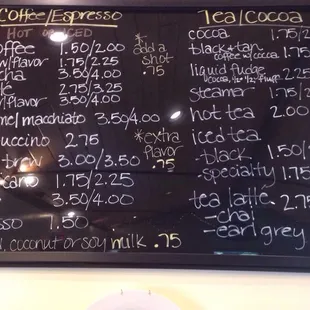 Coffee/Espresso
HOT ICED
coffee 1.50/2.00
w/flavor 1.75/2.25
3.50/4.00
2.75
w/flavor 3.50/4.00
macchiato 3.50/4.00
2.75
brew 3.00/3.50
1.75/2.25
3.50/4.00
1.50
coconut or soy milk .75
* add a shot .75
* extra flavor .75
Tea/Cocoa
cocoa 1.75/2
black+tan 1.75/2
coffee w/cocoa
liquid fudge 2.25
steamer 1.75/2
hot tea 2.00
iced tea
-black 1.50/2
-specialty 1.75
tea latte 2.75
-chai
-earl grey